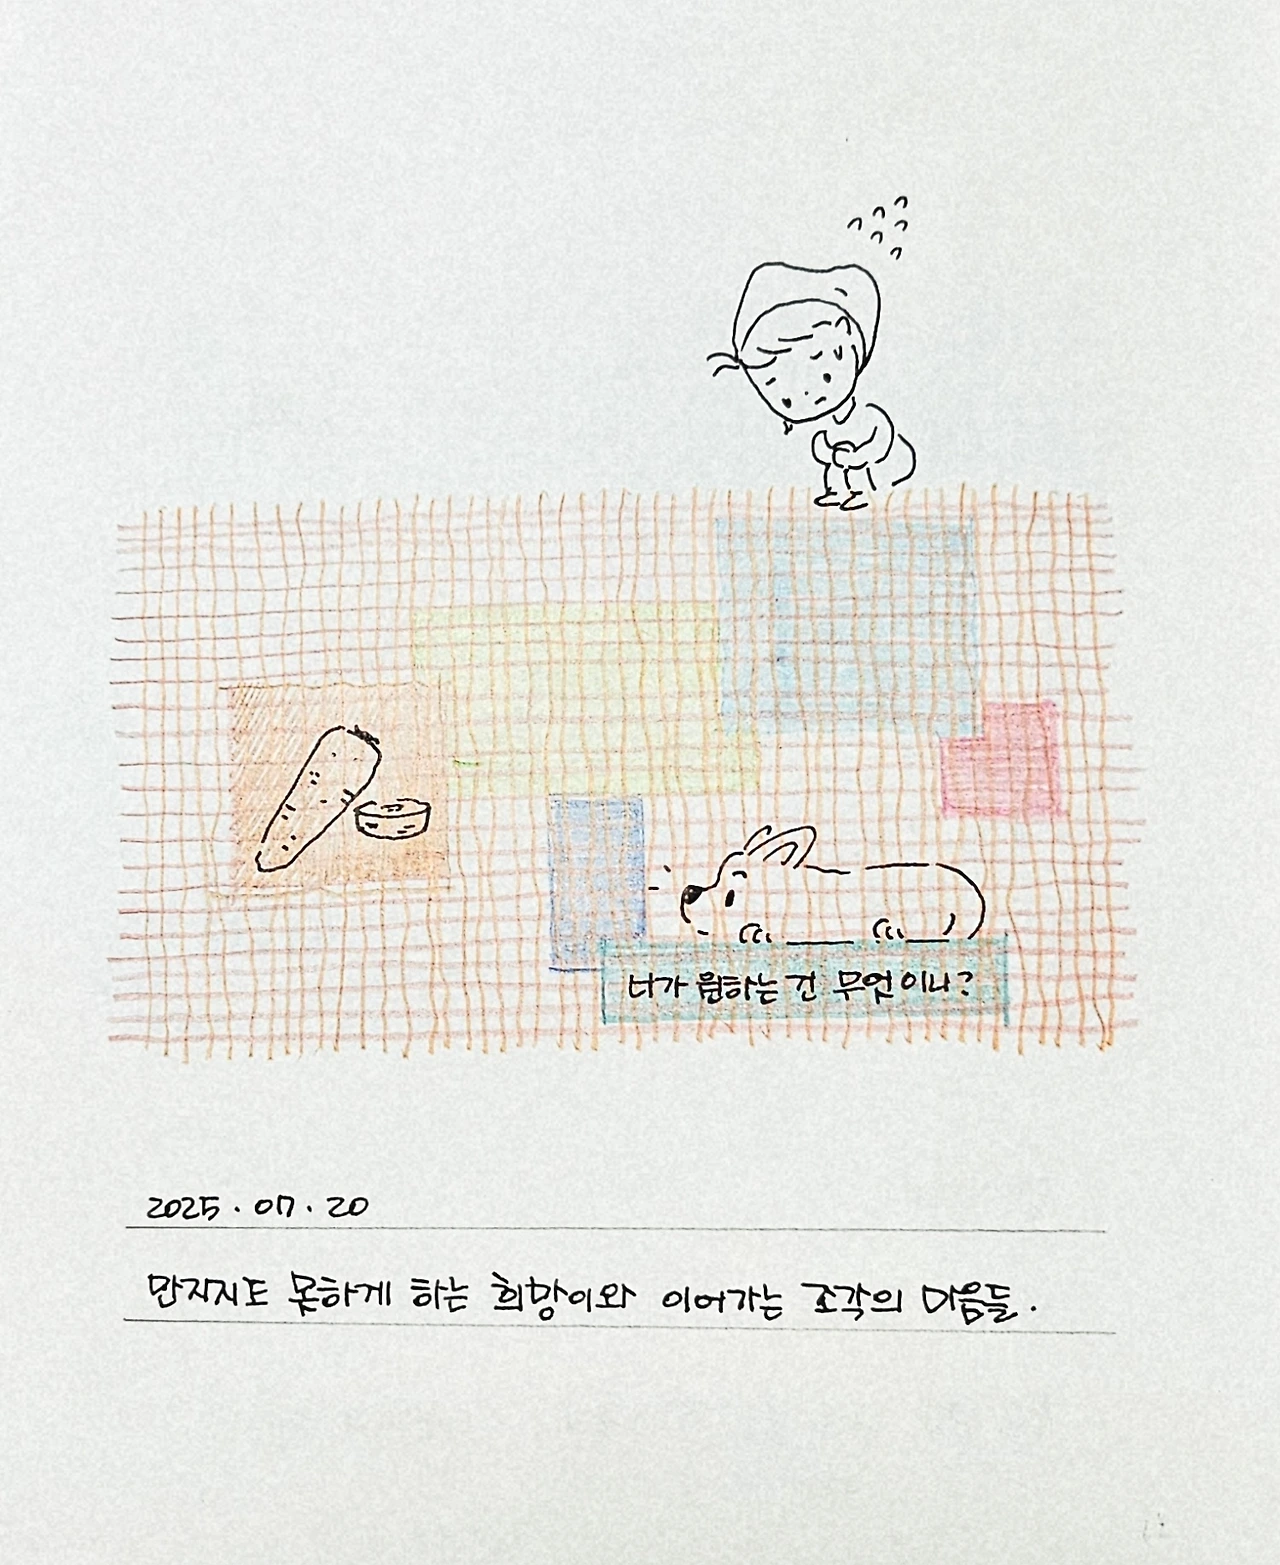 너가 원하는 건 무엇이냐?
2025.07.20
만지지도 못하게 하는 희망이와 이어가는 조각의 마음들.